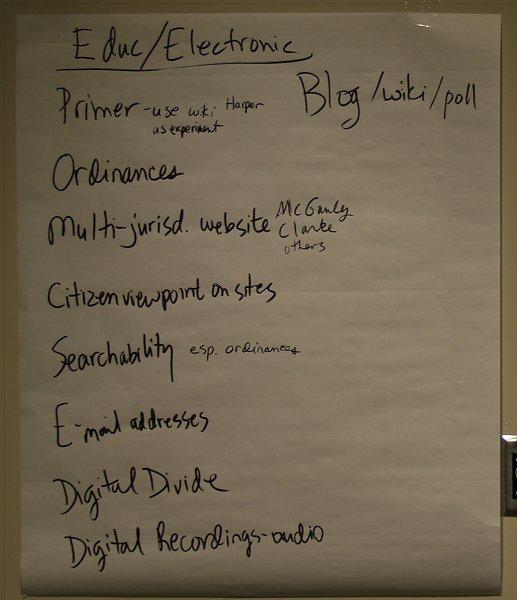 Educ/Electronic
Blog/wiki/poll
Primer - use wiki Harper
as experiment
Ordinances
Multi-jurisd. website McGauley
Clarke
others
Citizen viewpoint on sites
Searchability esp. ordinances
E-mail addresses
Digital Divide
Digital Recordings-audio